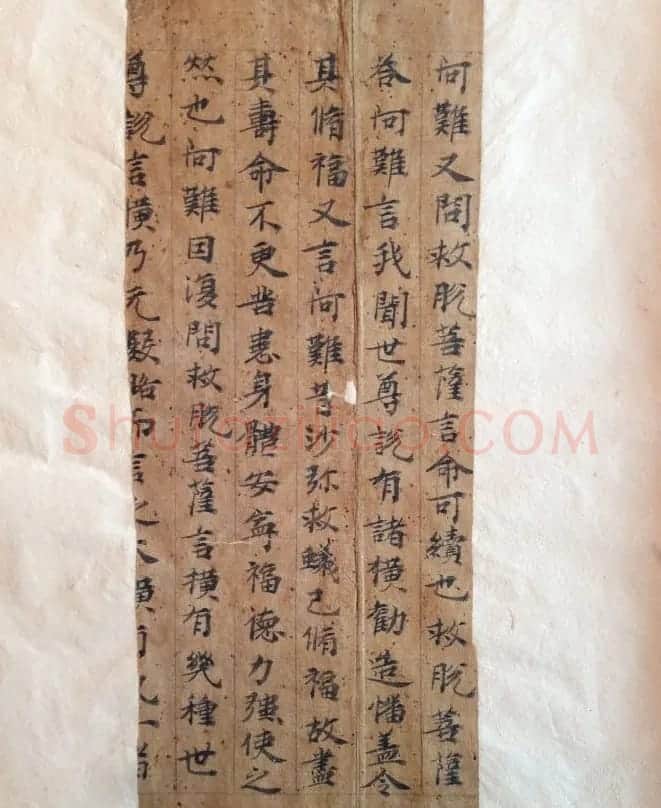 阿難又問救脫菩薩言命可續也救脫菩薩
荅阿難言我聞世尊說有諸横勸造幡盖令
其脩福又言阿難昔沙弥救蟻已脩福故盡
其壽命不更苦患身體安寧福德力強使之
然也阿難因復問救脫菩薩言横有幾種世
尊說言横乃无數略而言之大横有九一者
Shufaziliao.COM